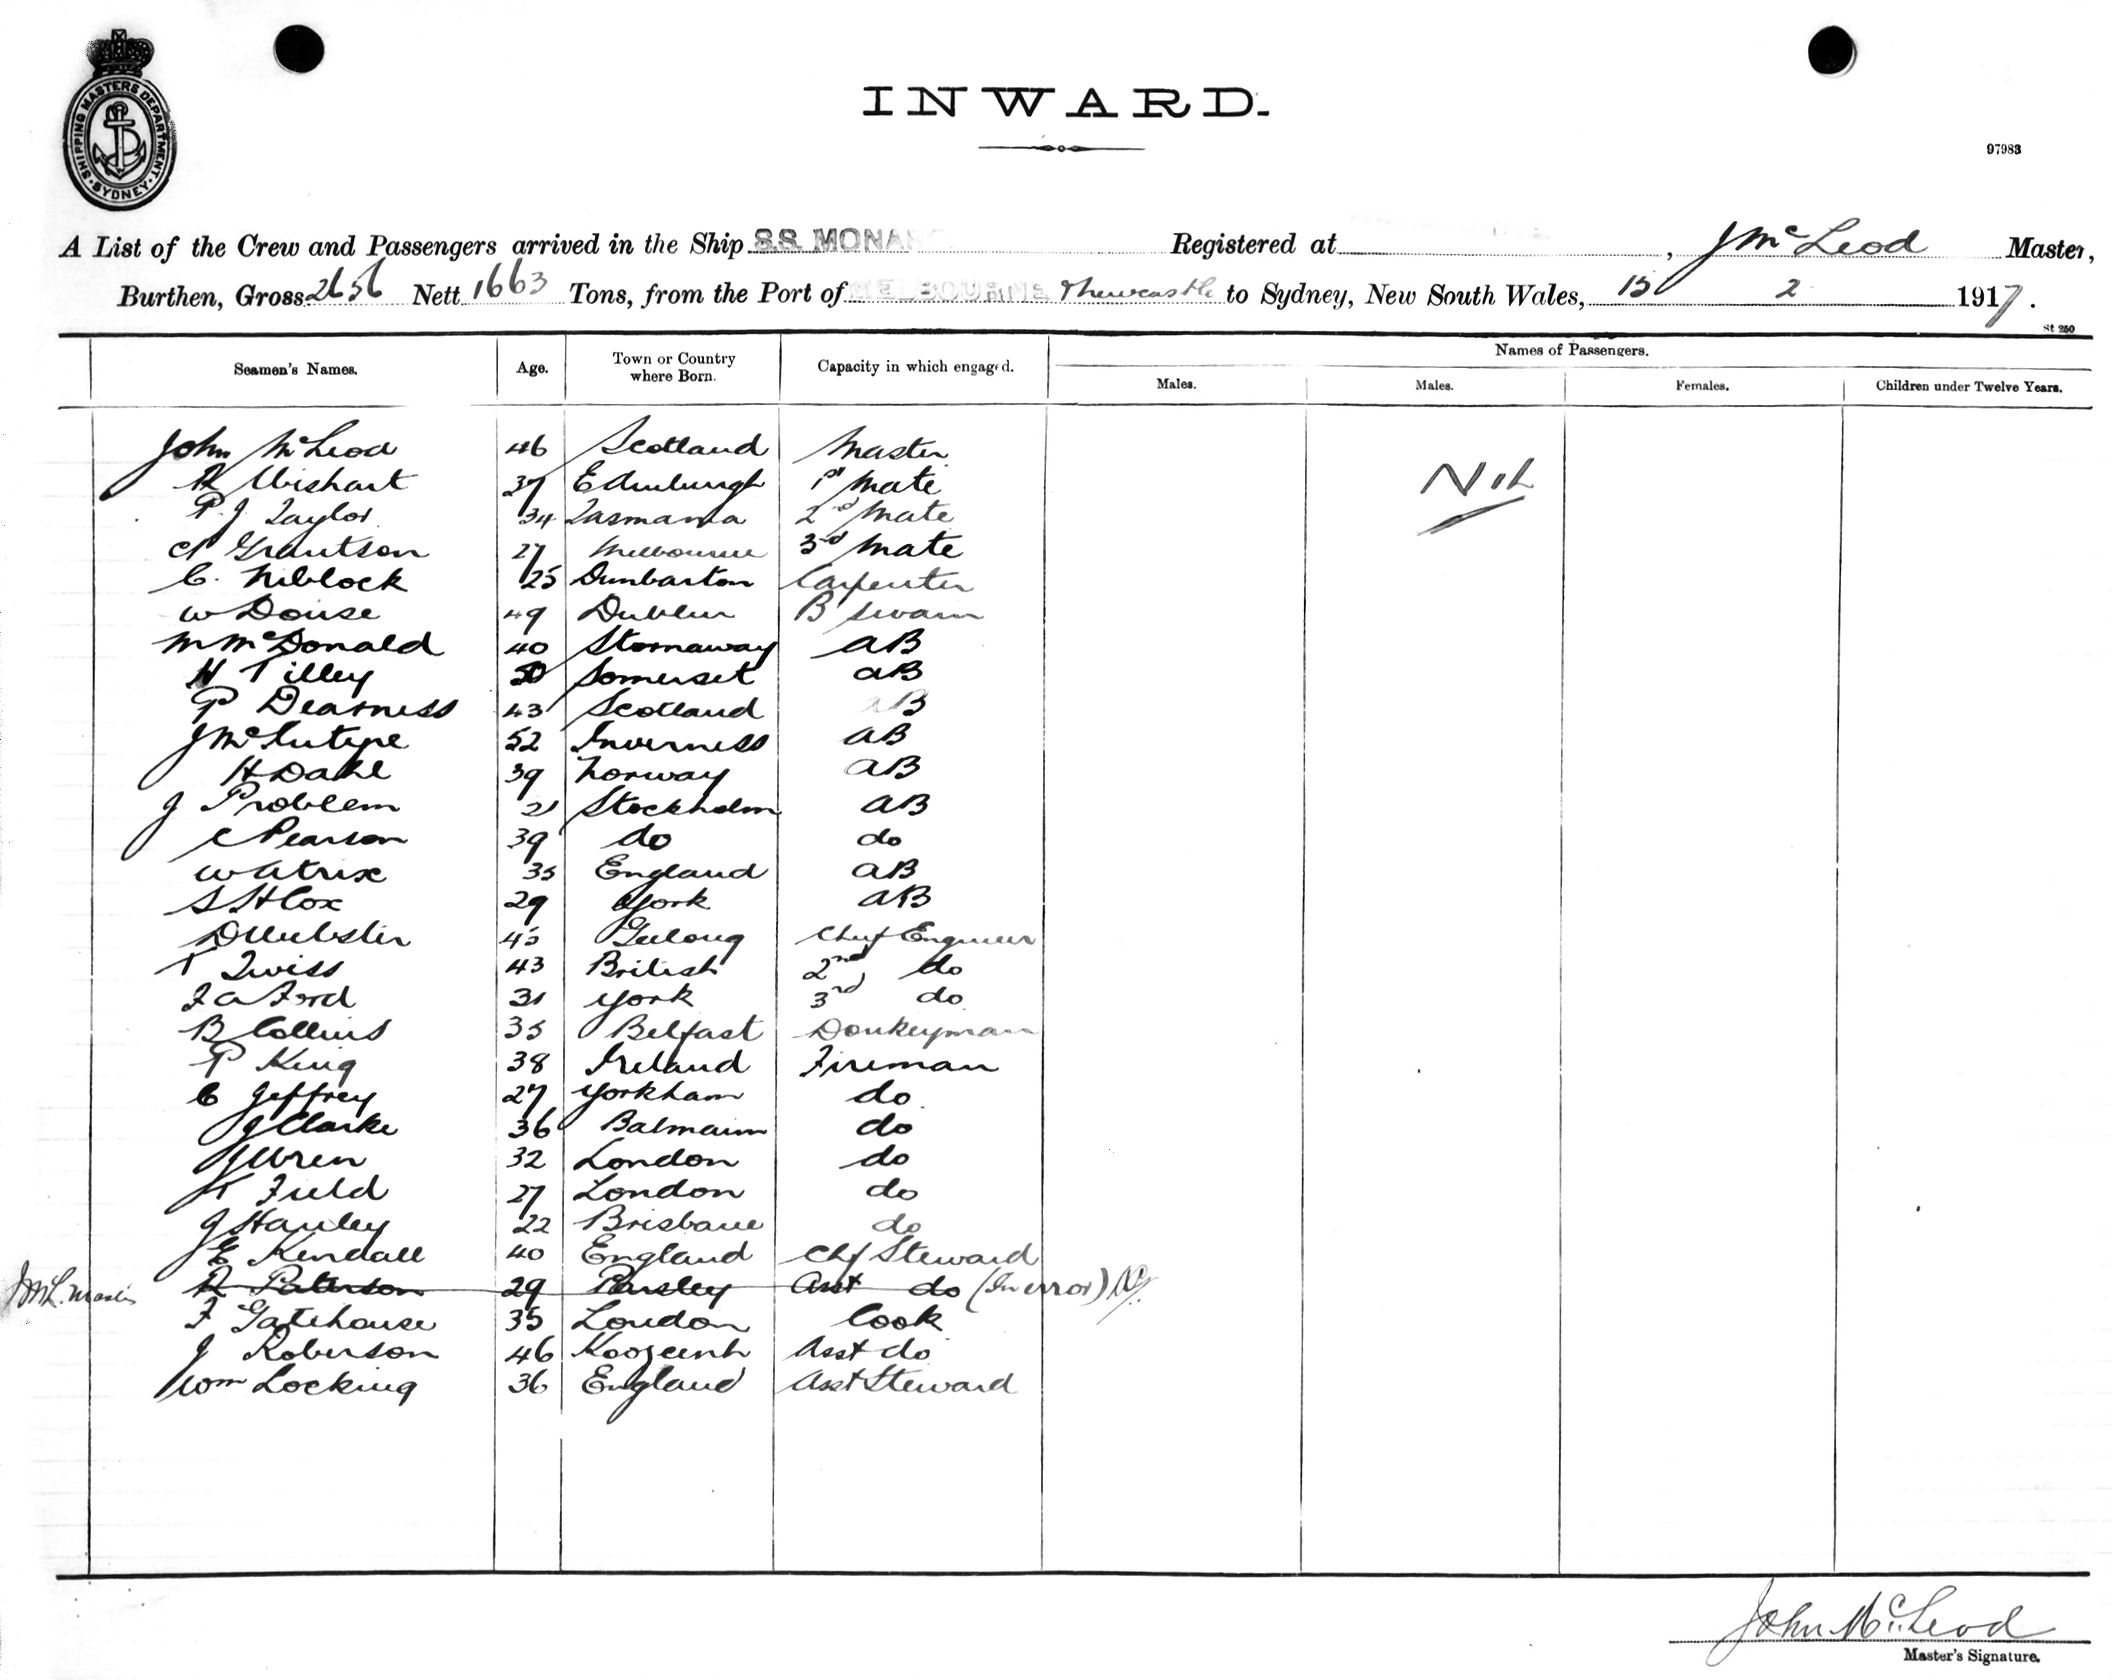 SHIPPING MASTERS DEPARTMENT. SYDNEY
INWARD.
97983
A List of the Crew and Passengers arrived in the Ship S.S. MONA Registered at , J McLeod Master,
Burthen, Gross 2656 Nett 1663 Tons, from the Port of MELBOURNE Newcastle to Sydney, New South Wales, 15 2 1917.
St 250
Seamen's Names. Age. Town or Country where Born. Capacity in which engaged. Names of Passengers.
Males. Males. Females. Children under Twelve Years.
John McLeod 46 Scotland Master
R Wishart 37 Edinburgh 1st Mate Nil
P. J Taylor 34 Tasmania 2nd Mate
Grantson 27 Melbourne 3rd Mate
C. Niblock 25 Dunbarton Carpenter
W Douse 49 Dublin B swain
M McDonald 40 Stornaway AB
H Tilley 50 Somerset AB
P Dearness 43 Scotland AB
J McIntype 52 Inverness AB
H Dahl 39 Norway AB
J Problem 21 Stockholm AB
C Pearson 39 do do
W Atrix 35 England AB
S H Cox 29 York AB
D Webster 45 Geelong Chief Engineer
T Twiss 43 British 2nd do
F A Ford 31 York 3rd do
B Collins 35 Belfast Donkeyman
P King 38 Ireland Fireman
C Jeffrey 27 Yorkham do
J Clarke 36 Balmain do
J Wren 32 London do
T Field 27 London do
J Hanley 22 Brisbane do
J E Kendall 40 England Chf Steward
J McL. Master R Paterson 29 Paisley Asst do (In error)
F Gatehouse 35 London Cook
J Roberson 46 Asst do
Wm Locking 36 England Asst Steward
John McLeod
Master's Signature.